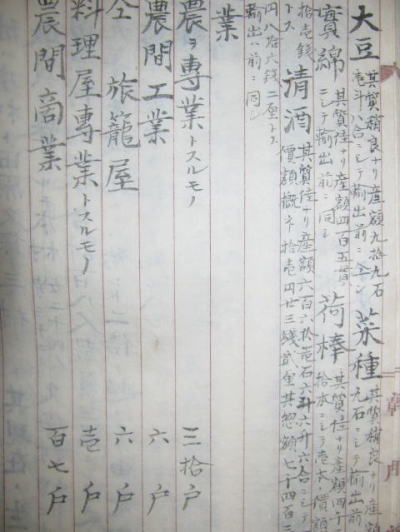 大豆 其質稍良ナリ産額九拾九石
壱斗八合ニシテ輸出前ニ仝シ 菜種 其質稍良ナリ産
九石ニシテ輸出前
實綿 其質佳ナリ産額四百五貫
ニシテ輸出前ニ同シ 荷棒 其質佳ナリ産額四千
拾本ニシテ壱本價額
拾壱銭
トス 清酒 其質佳ナリ産額六百六拾壱石六斗六升六合ニシテ
價額概ネ拾壱円廿三銭
円八十六銭二厘トス
輸出ハ前ニ同シ
業
農ヲ專業トスルモノ 三拾戸
農間工業 六戸
仝 旅籠屋 六戸
料理屋專業トスルモノ 壱戸
農間商業 百七戸